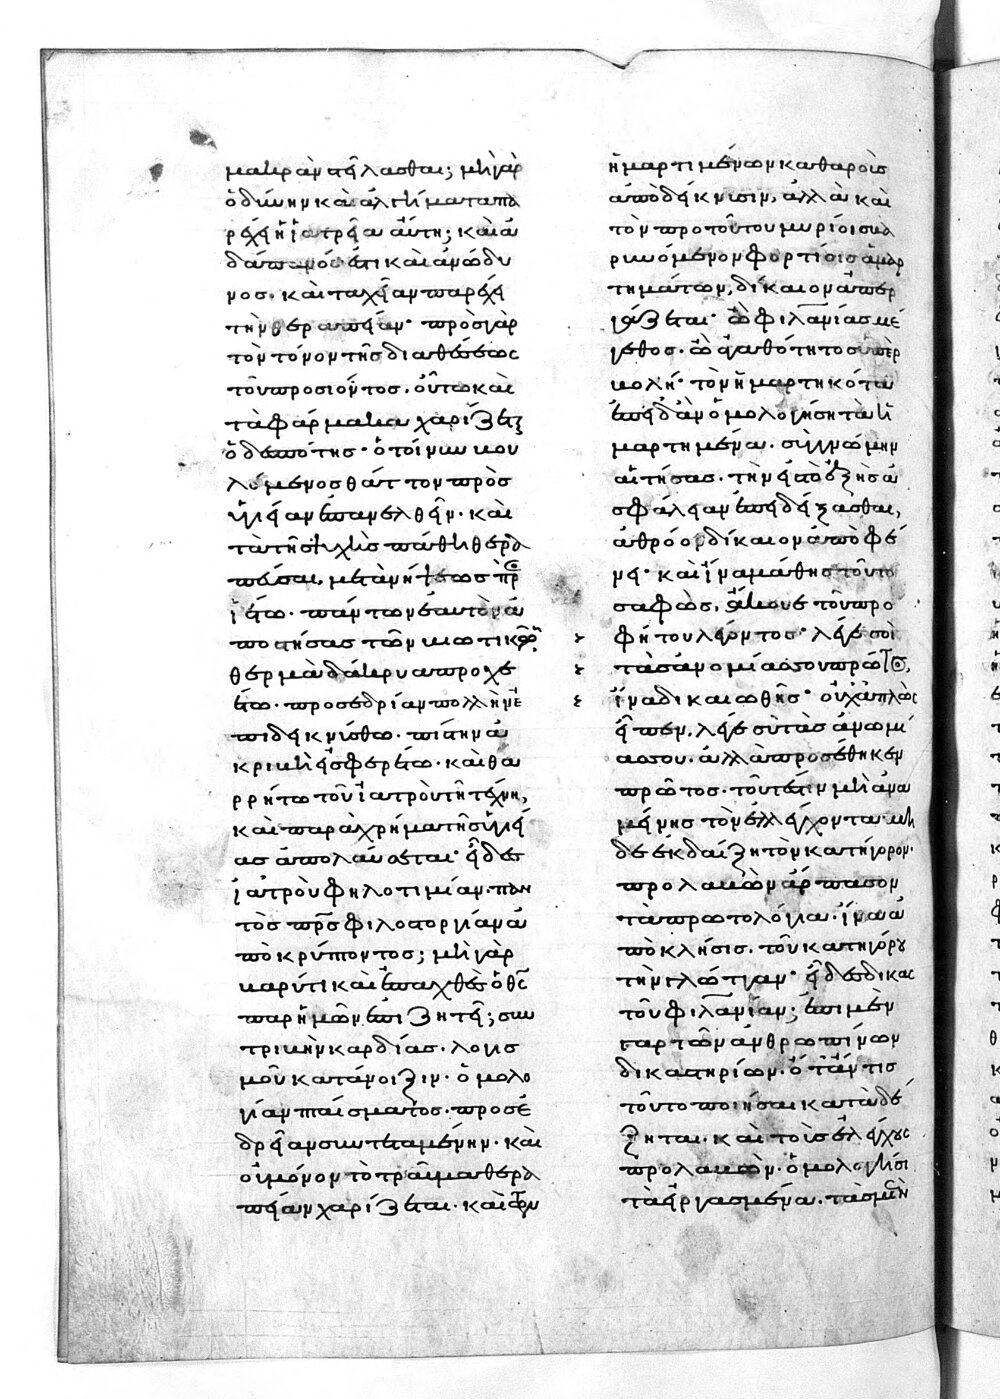 μακρὰν στέλλεσθαι; μὴ γὰρ
ὀδύνην καὶ ἀλγήματα πα
ρέχει ἡ ἰατρεία αὕτη; καὶ ἀ
δάπανός ἐστι καὶ ἀνώδυ
νος· καὶ ταχεῖαν παρέχει
τὴν θεραπείαν· πρὸς γὰρ
τὸν τόνον τῆς διαθέσεως
τοῦ προσιόντος· οὕτω καὶ
τὰ φάρμακα χαρίζεται
ὁ δεσπότης· ὁ τοίνυν βου
λόμενος θᾶττον πρὸς
ὑγιείαν ἐπανελθεῖν· καὶ
τὰ τῆς ψυχῆς πάθη θερα
πεῦσαι, μετὰ νήψεως πρ
ϊέτω· πάντων ἑαυτὸν ἀ
ποστήσας τῶν βιωτικῶν
θερμὰ δάκρυα προχε
έτω· προσεδρίαν πολλὴν ἐ
πιδεικνύσθω· πίστιν ἀ
κριβῆ εἰσφερέτω· καὶ θα
ρρείτω τοῦ ἰατροῦ τῇ τέχνῃ,
καὶ παραχρῆμα τῆς ὑγιεί
ας ἀπολαύσεται· εἶδες
ἰατροῦ φιλοτιμίαν· παν
τὸς πρς φιλοστοργίαν ἀ
ποκρύπτοντος; μὴ γὰρ
βαρύ τι καὶ ἐπαχθὲς ὁ θς
παρ ἡμῶν ἐπιζητεῖ; συν
τριβὴν καρδίας· λογισ
μοῦ κατάνυξιν· ὁμολο
γίαν πταίσματος· προσε
δρείαν συντεταμένην· καὶ
οὐ μόνον τὸ τραῦμα θερα
πεύων χαρίζεται· καὶ τὸν
ἡμαρτημένων καθαροὺς
ἀποδείκνυσιν, ἀλλὰ καὶ
τὸν πρὸ τούτου μυρίοις βα
ρυνόμενον φορτίοις ἁμαρ
τημάτων, δίκαιον ἀπερ
γάζεται· ὢ φιλανιας μέ
γεθος· ὢ ἀγαθότητος ὑπερ
βολή· τὸν ἡμαρτηκότα
ἐπειδὰν ὁμολογήσῃ τὰ ἡ
μαρτημένα· συγγνώμην
αἰτήσας· τὴν εἰς τὸ ἑξῆς ἀ
σφάλειαν ἐπιδείξασθαι,
ἀθρόον δίκαιον ἀποφαί
νει· καὶ ἵνα μάθῃς τοῦτο
σαφῶς, ἄκουε τοῦ προ
φήτου λέγοντος· λέγε σὺ
τὰς ἀνομίας σου πρῶτος,
ἵνα δικαιωθῇς· οὐχ ἁπλῶς
εἶπεν, λέγε σὺ τὰς ἀνομί
ας σου· ἀλλὰ προσέθηκεν
πρῶτος· τουτέστιν μὴ ἀνα
μένῃς τὸν ἐλέγχοντα· μη
δὲ ἐκδέξῃ τὸν κατήγορον·
προλαβὼν ἅρπασον
τὰ πρωτολόγια· ἵνα ἀ
ποκλείσῃς τοῦ κατηγόρου
τὴν γλῶτταν· εἶδες δικασ
τοῦ φιλανιαν; ἐπὶ μὲν
γὰρ τῶν ἀνθρωπίνων
δικαστηρίων· ὅταν τις
τοῦτο ποιῆσαι καταδέ
ξηται· καὶ τοὺς ἐλέγχους
προλαβὼν· ὁμολογήσῃ
τὰ εἰργασμένα· τὰς μὲν